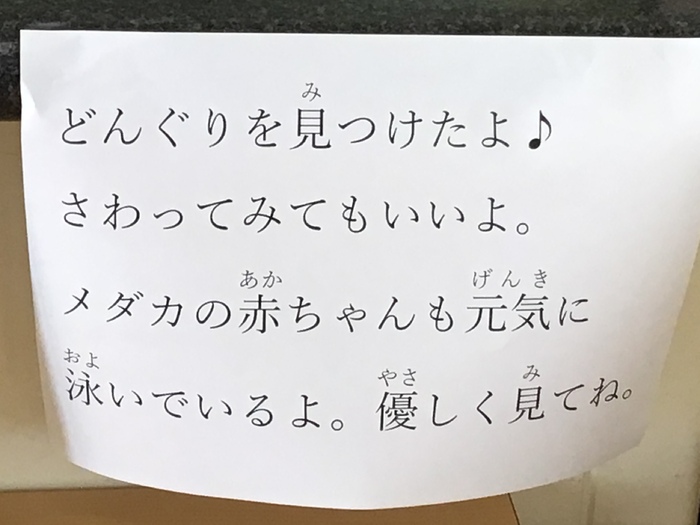 どんぐりを見つけたよ♪
さわってみてもいいよ。
メダカの赤ちゃんも元気に
泳いでいるよ。優しく見てね。